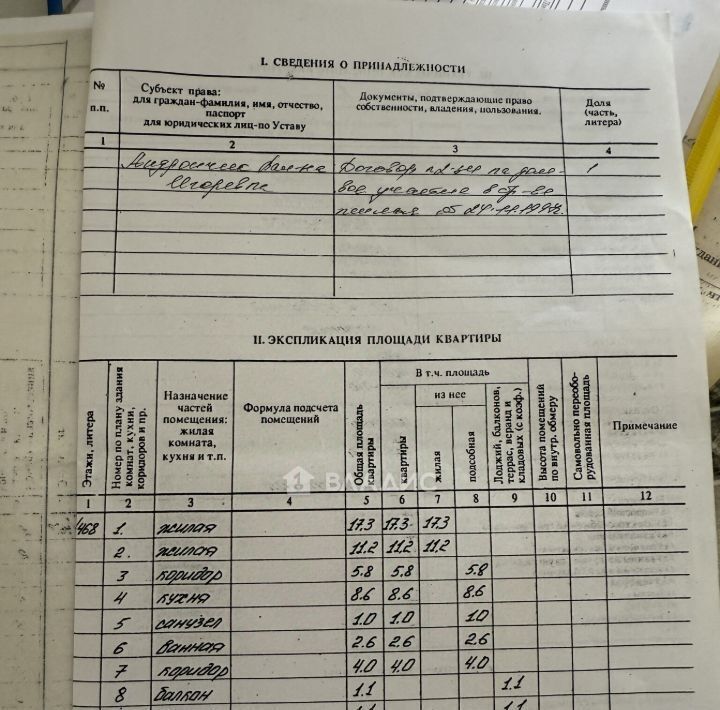 I. СВЕДЕНИЯ О ПРИНАДЛЕЖНОСТИ
№ п.п.
Субъект права:
для граждан-фамилия, имя, отчество,
паспорт
для юридических лиц-по Уставу
Документы, подтверждающие право
собственности, владения, пользования.
Доля
(часть,
литера)
1 2 3 4
Игоревна
Договор 1
участие в
от 24.11.199
II. ЭКСПЛИКАЦИЯ ПЛОЩАДИ КВАРТИРЫ
Этажи, литера
Номер по плану здания
комнат, кухни,
коридоров и пр.
Назначение
частей
помещения:
жилая
комната,
кухня и т.п.
Формула подсчета
помещений
Общая площадь
квартиры
В т.ч. площадь
квартиры
из нее
жилая
подсобная
Лоджий, балконов,
террас, веранд и
кладовых (с коэф.)
Высота помещений
по внутр. обмеру
Самовольно переобо-
рудованная площадь
Примечание
ВЛАДИС
1 2 3 4 5 6 7 8 9 10 11 12
468 1. жилая 17.3 17.3 17.3
2. жилая 11.2 11.2 11.2
3 коридор 5.8 5.8 5.8
4 кухня 8.6 8.6 8.6
5 санузел 1.0 1.0 1.0
6 ванная 2.6 2.6 2.6
7 коридор 4.0 4.0 4.0
8 балкон 1.1 1.1
1.1 1.1